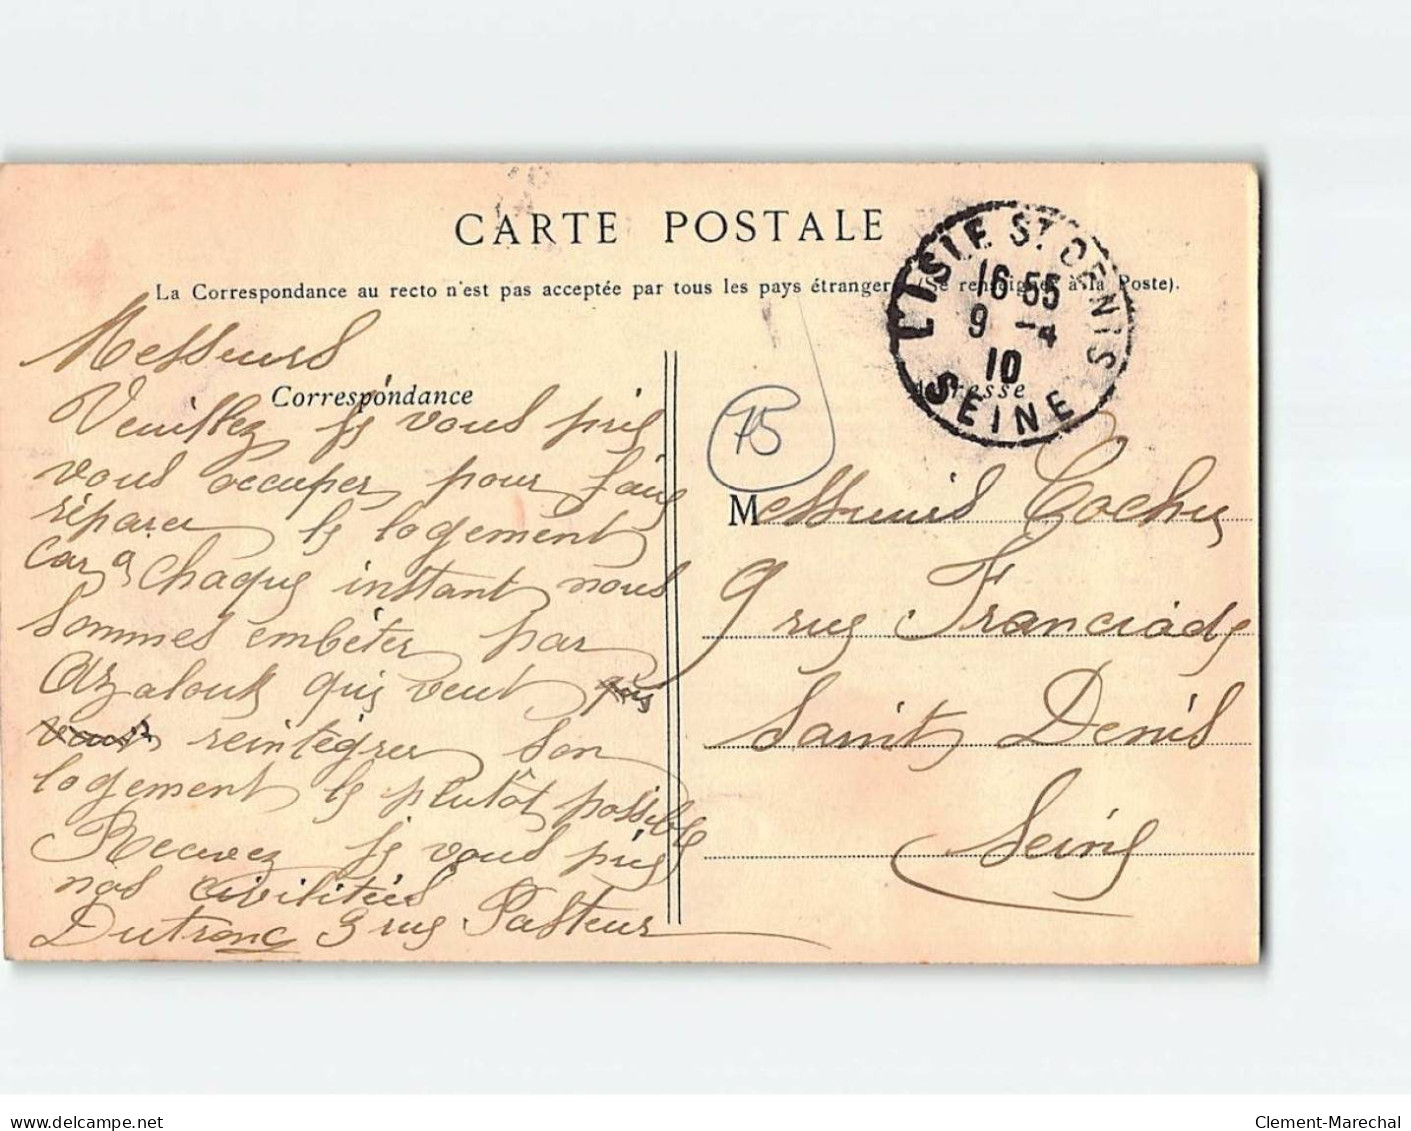 CARTE POSTALE
La Correspondance au recto n'est pas acceptée par tous les pays étrangers (Se renseigner à la Poste).
Correspondance
Adresse
L'ISLE ST DENIS
16 55
9 -4
10
SEINE
75
Messieurs
Veuillez je vous prie
vous occuper pour faire
réparer le logement
car a chaque instant nous
sommes embêter par
Azalouk qui veut
reintégrer son
logement le plutôt possible
Recevez je vous prie
nos civilitées
Dutronc 9 rue Pasteur
Messieurs Cochu
9 rue Franciade
Saint Denis
Seine
delcampe.net
Clement-Marechal